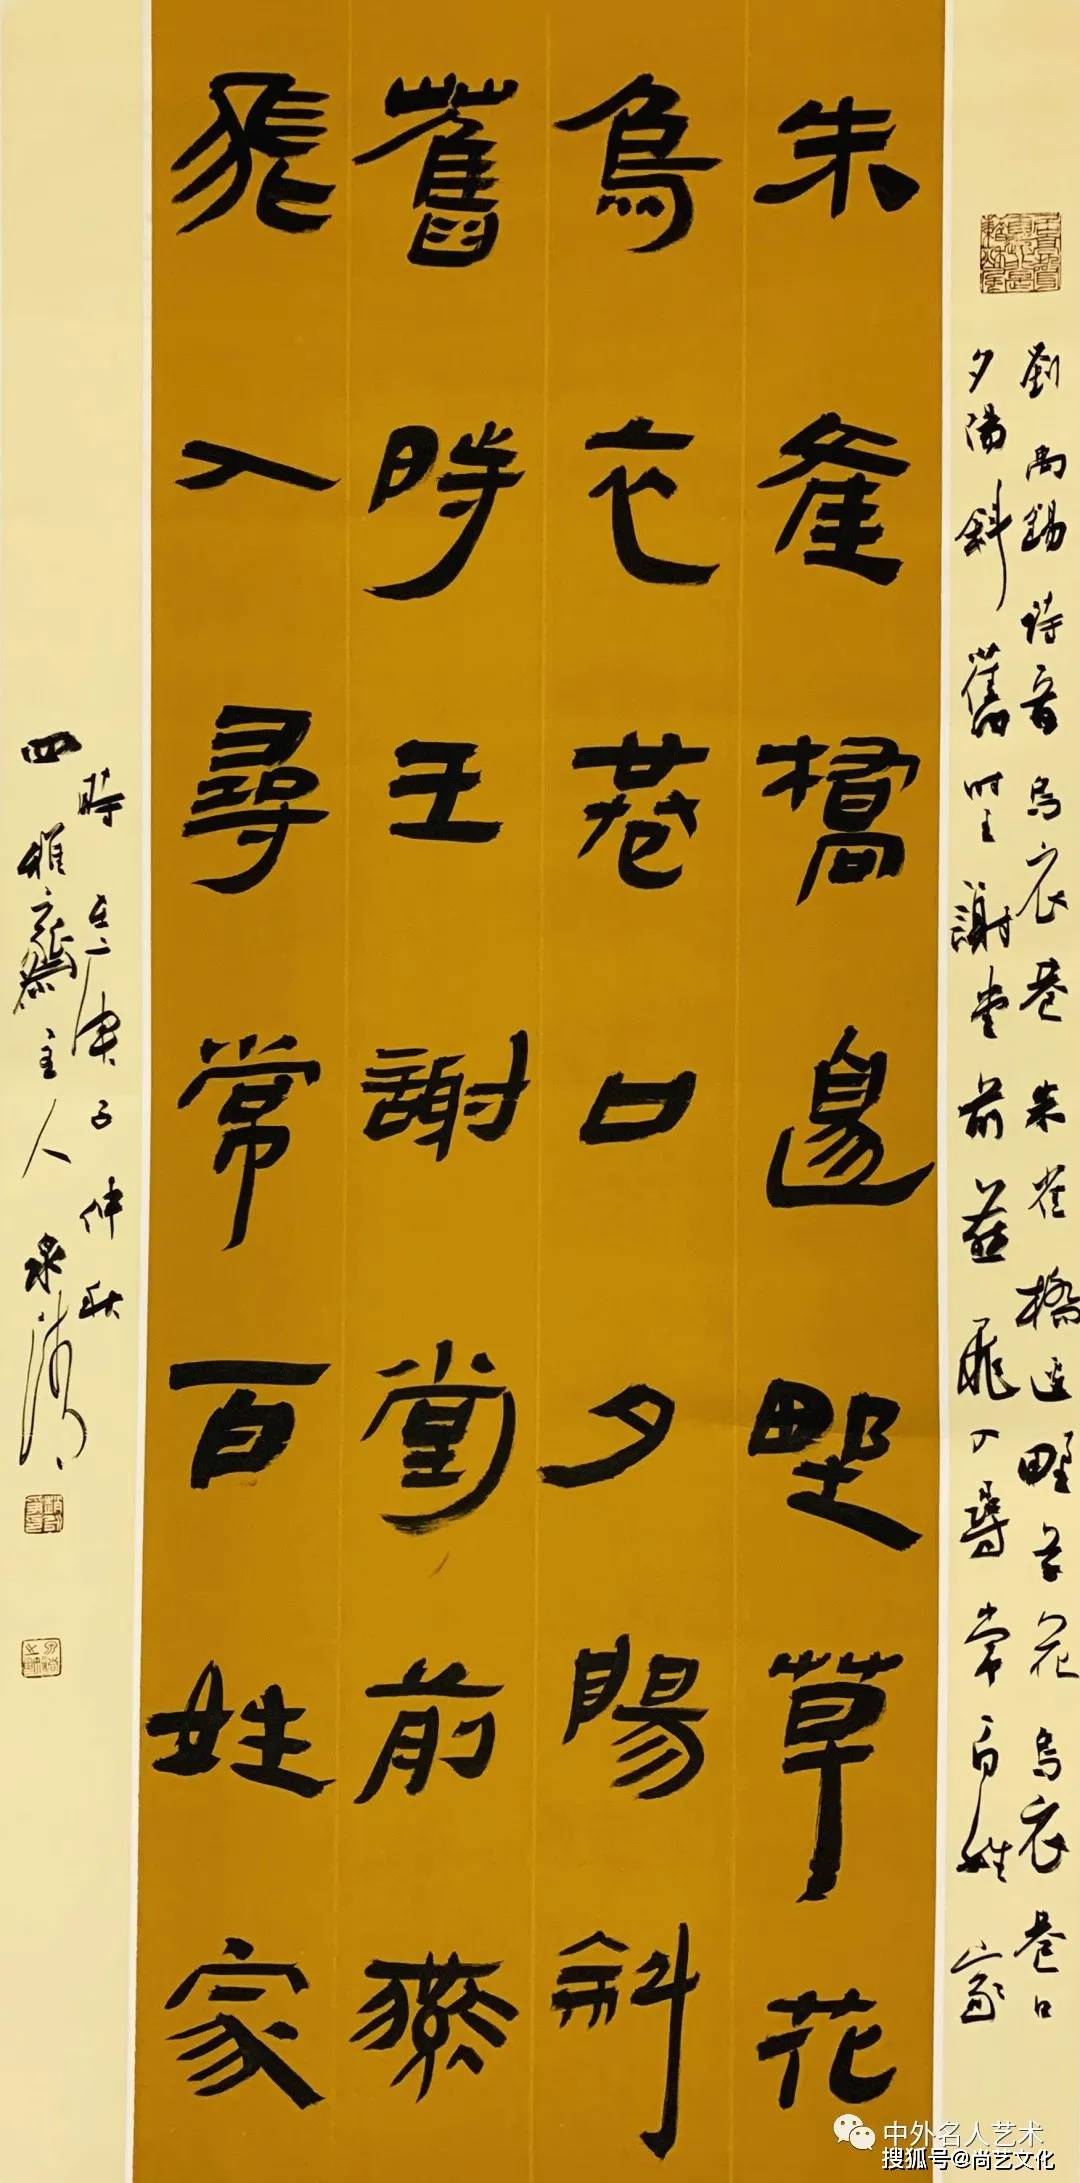 朱雀橋邊野草花
烏衣巷口夕陽斜
舊時王謝堂前燕
飛入尋常百姓家
劉禹錫詩首烏衣巷朱雀橋邊野草花烏衣巷口
夕陽斜舊時王謝堂前燕飛入尋常百姓家
時在庚子仲秋
四雅齋主人泉清
中外名人艺术
搜狐号@尚艺文化